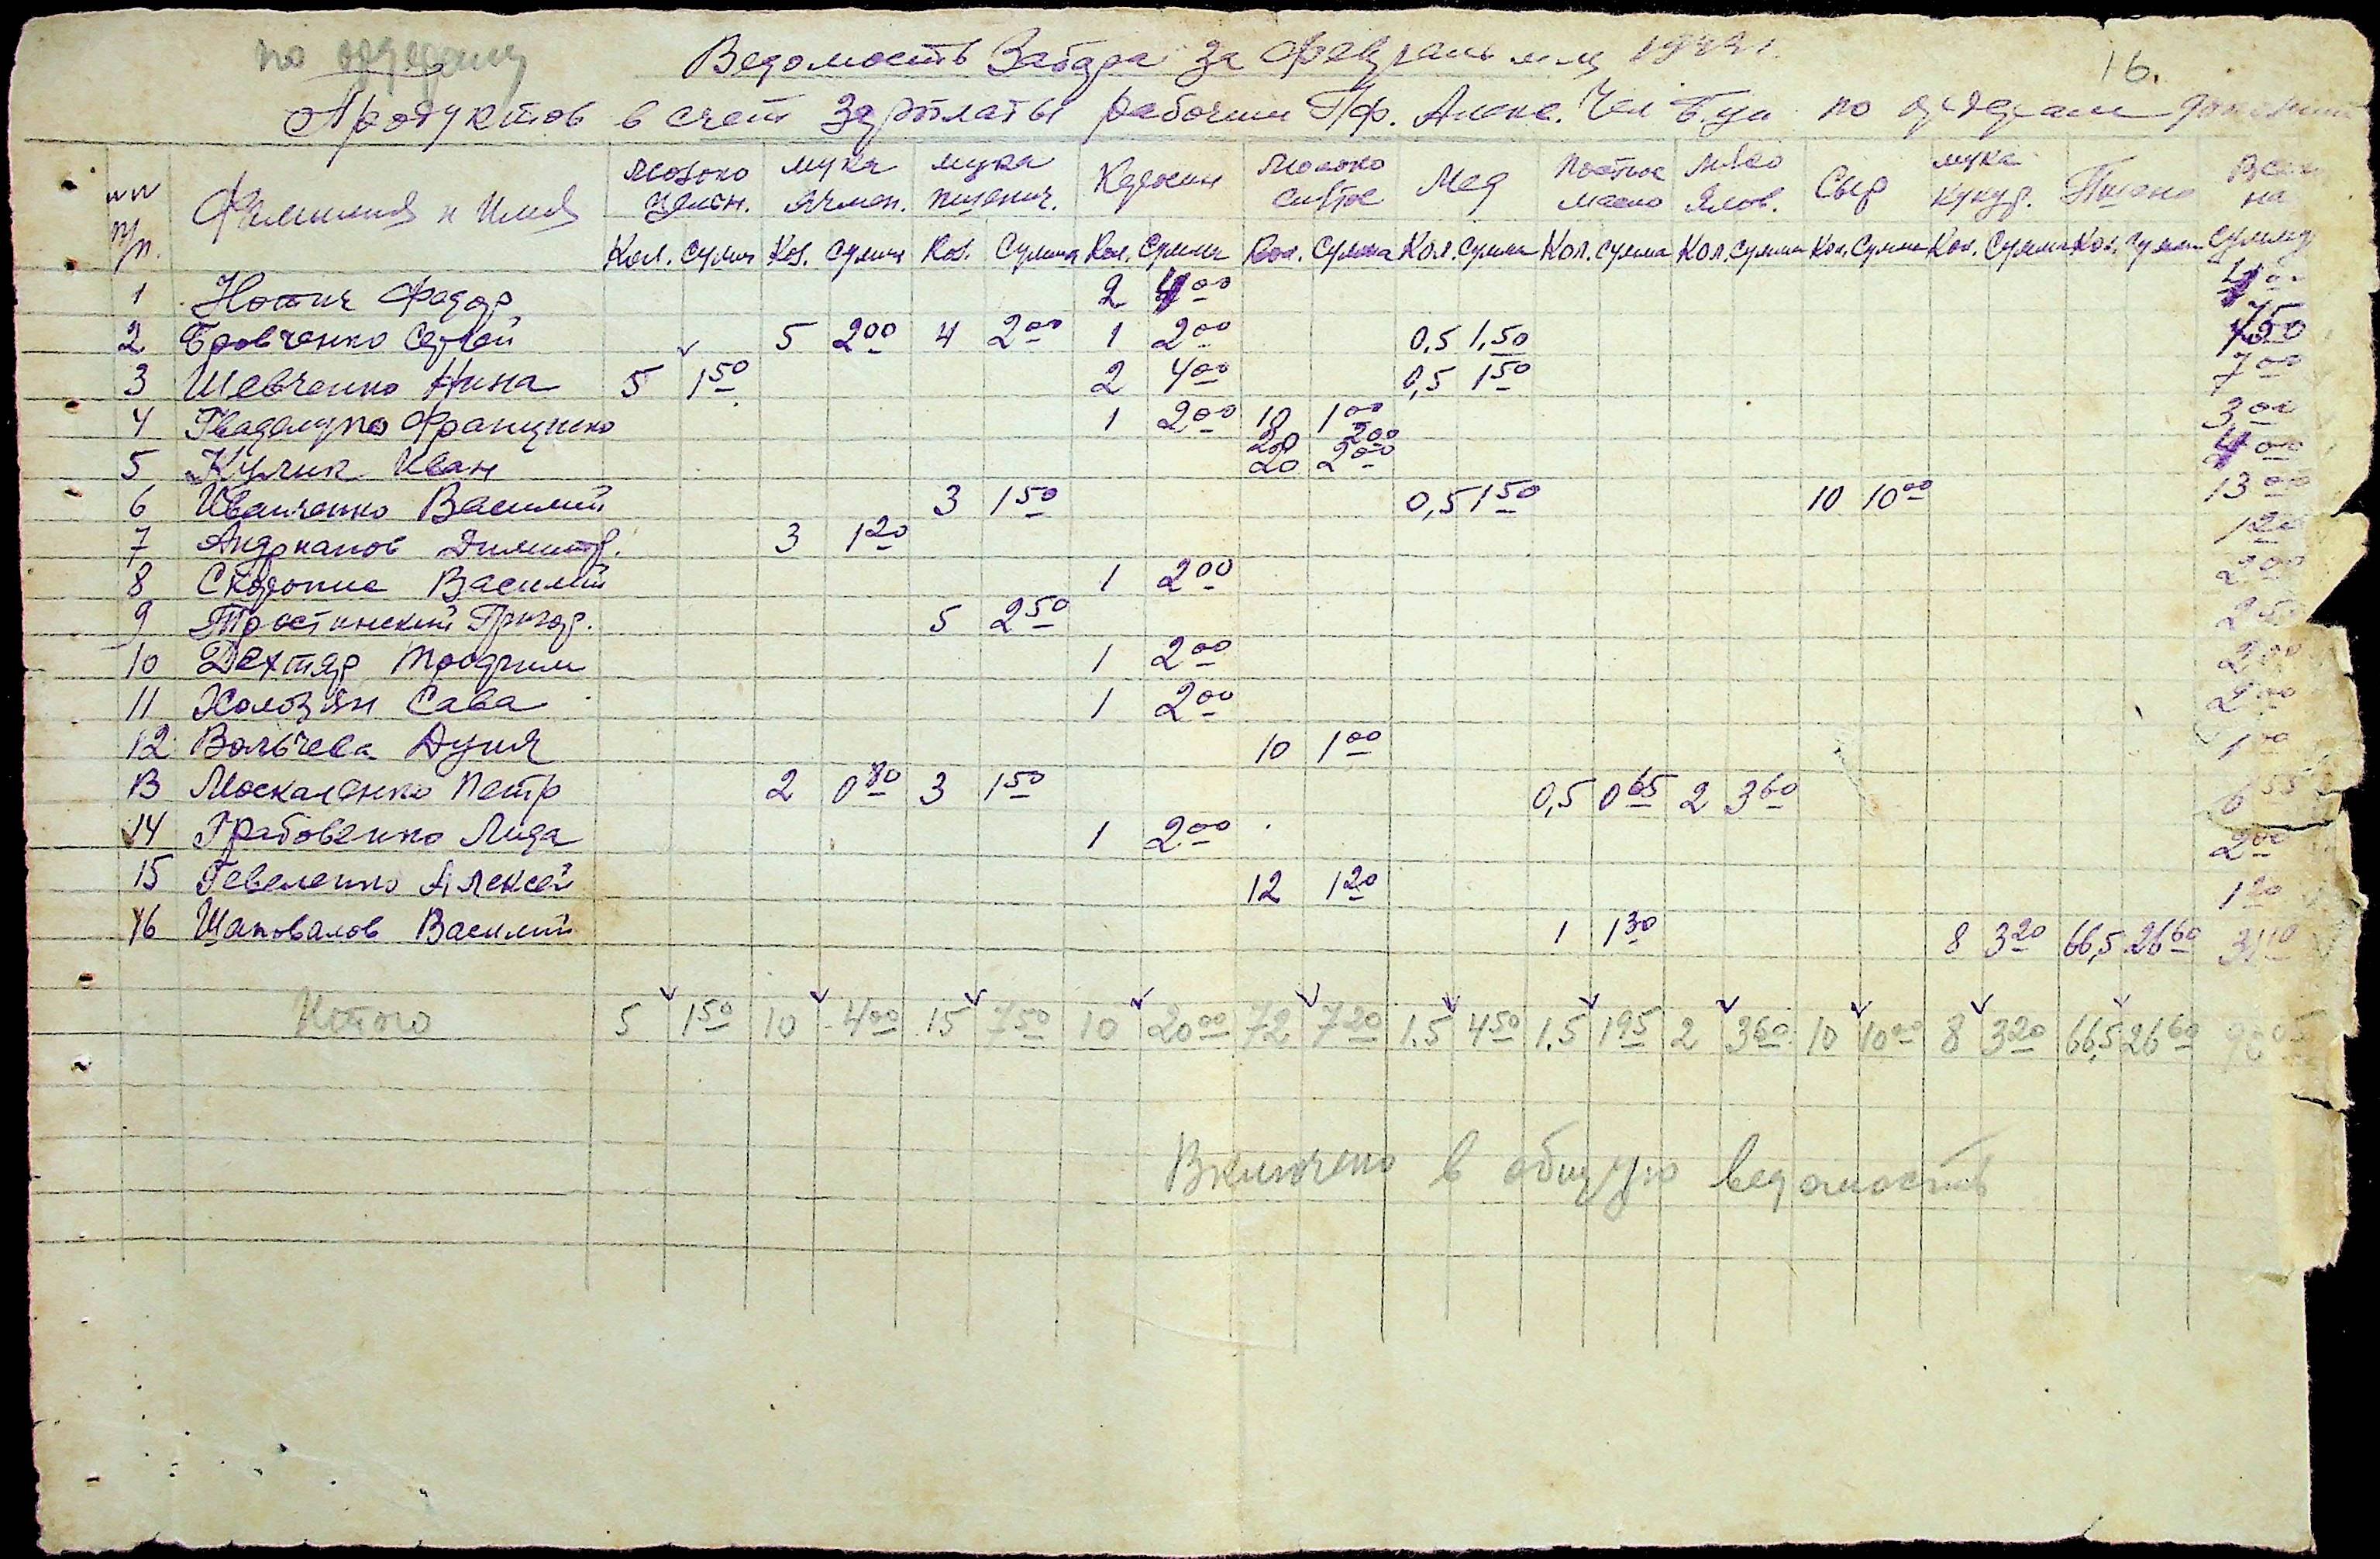 по ордерам
Ведомость Забора за Февраль м-ц
16.
Продуктов в счет Зарплаты рабочими Пф. Алекс. Чел Буи по ордерам
№№ п/п. Фамилия и Имя Молоко цельн. мука ячмен. мука пшенич. Керосин Молоко снятое Мед Постное масло Мясо Ялов. Сыр мука кукур. Пшено Всего на сумму
Кол. Сумма Кол. Сумма Кол. Сумма Кол. Сумма Кол. Сумма Кол. Сумма Кол. Сумма Кол. Сумма Кол. Сумма Кол. Сумма Кол. Сумма
1 Федор 2 4 00 4 00
2 Бровченко Сергей 5 2 00 4 2 00 1 2 00 0,5 1,50 7 50
3 Шевченко Нина 5 1 50 2 4 00 0,5 1 50 7 00
4 Франциско 1 2 00 10 1 00 3 00
20 2 00
5 Кулик Иван 20 2 00 4 00
6 Иванченко Василий 3 1 50 0,5 1 50 10 10 00 13 00
7 Андрианов Димитр. 3 1 20 1 20
8 Василий 1 2 00 2 00
9 Тростинский Григор. 5 2 50 2 50
10 Дехтяр Трофим 1 2 00 2 00
11 Холозян Сава 1 2 00 2 00
12 Волычева Дуня 10 1 00 1 00
13 Москаленко Петр 2 0 80 3 1 50 0,5 0 65 2 3 60 6 55
14 Грабовенко Лида 1 2 00 2 00
15 Гевеленко Алексей 12 1 20 1 20
16 Шаповалов Василий 1 1 30 8 3 20 66,5 26 60 31 10
Итого 5 1 50 10 4 00 15 7 50 10 20 00 72 7 20 1.5 4 50 1.5 1 95 2 3 60 10 10 00 8 3 20 66,5 26 60 90 05
Включено в общую ведомость